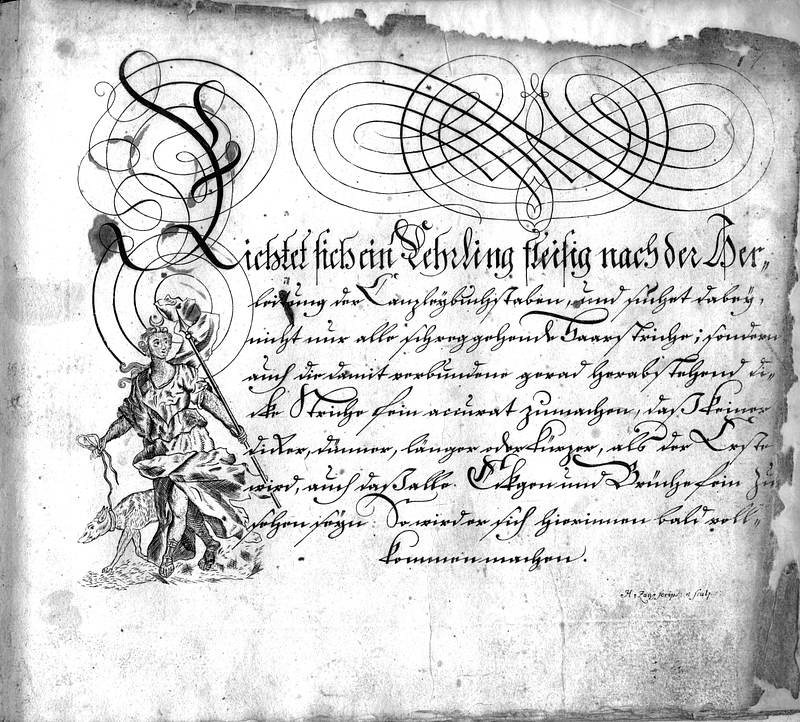 Richtet sich ein Lehrling fleisig nach der Her-
leitung der Canzleybuchstaben, und suchet dabey,
nicht nur alle schreggehende Haarstriche; sondern
auch die damit verbundene gerad herabstehend di-
cke Striche fein accurat zumachen, daß keiner
dicker, dünner, länger oder kürzer, als der Erste
wird, auch daß alle Eckgen und Brüche fein zu
sehen seyn: So wird er sich hierinnen bald voll-
kommen machen.
scrips. et sculp.